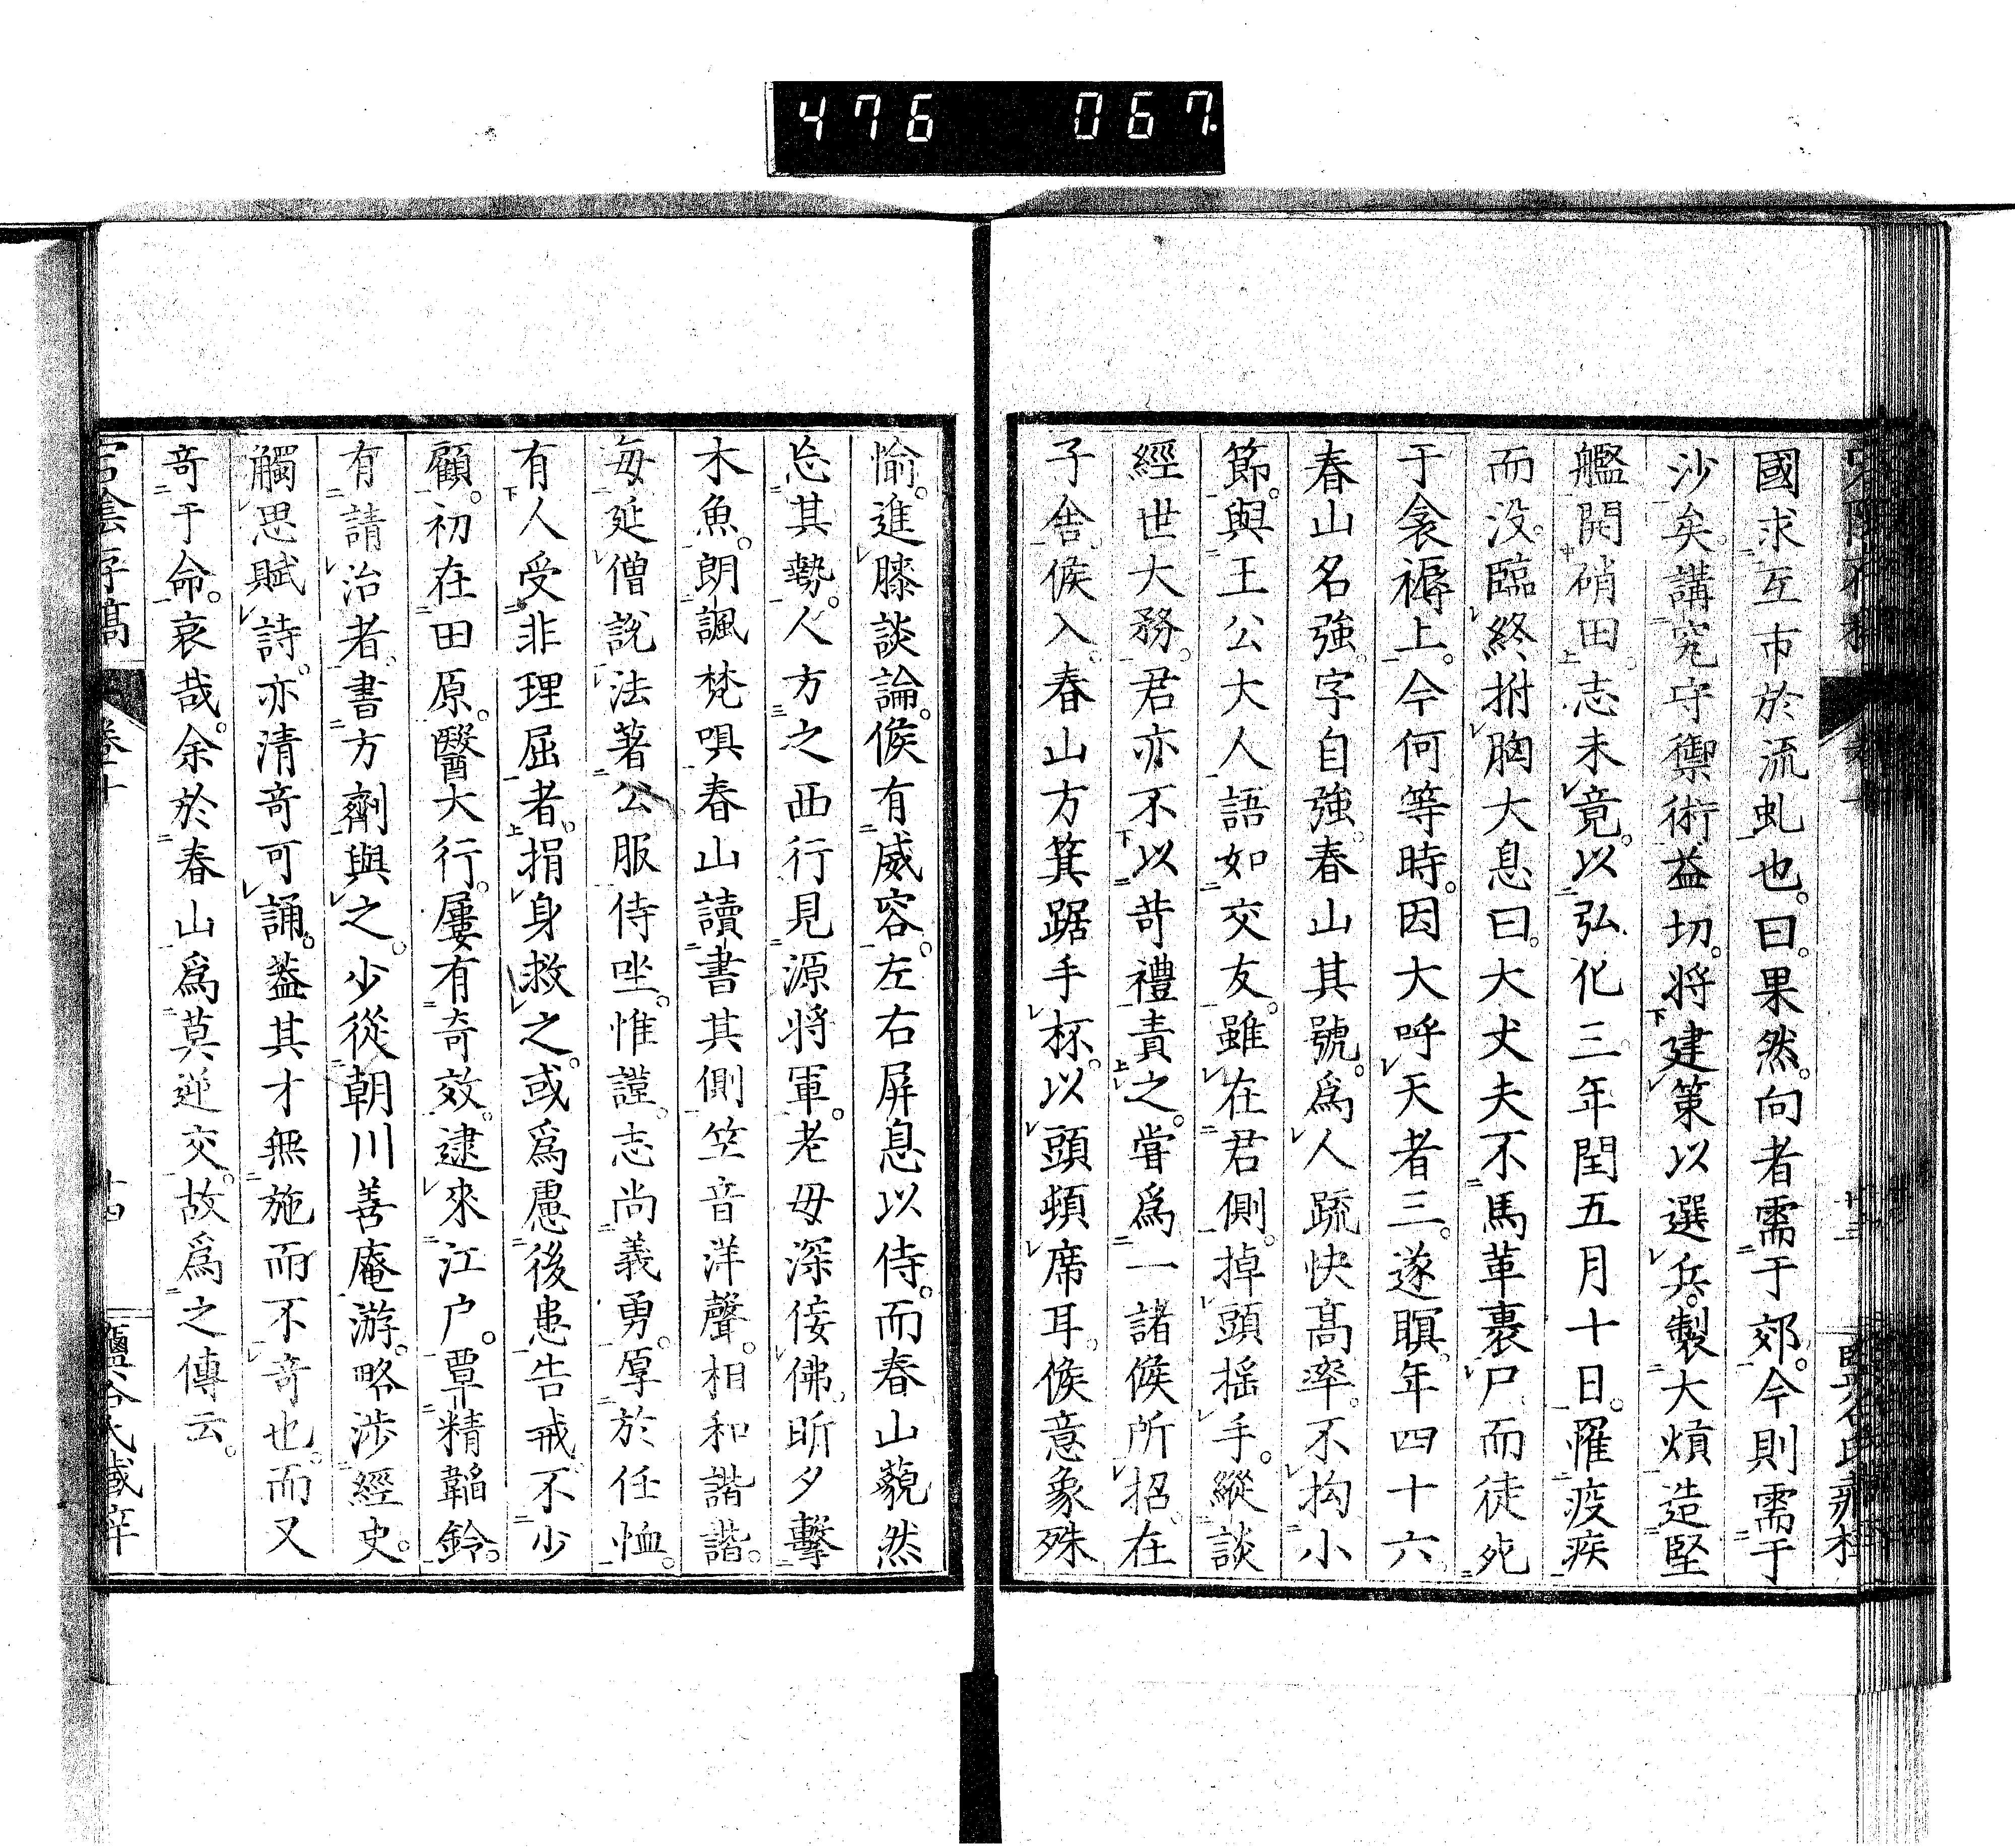 476 067
國求互市於流虬也。曰。果然。向者需于郊。今則需于
沙矣。講究守禦術益切。將建策以選兵。製大熕造堅
艦開硝田。志未竟。以弘化三年閏五月十日。罹疫疾
而没。臨終拊胸大息曰。大丈夫不馬革裹尸而徒死
于衾褥上。今何等時。因大呼天者三。遂瞑。年四十六。
春山名強。字自強。春山其號。爲人疏快高率。不拘小
節。與王公大人語如交友。雖在君側。掉頭搖手。縱談
經世大務。君亦不以苛禮責之。嘗爲一諸侯所招。在
子舎。侯入。春山方箕踞手杯。以頭頓席耳。侯意象殊
愉。進膝談論。侯有威容。左右屏息以侍。而春山藐然
忘其勢。人方之西行見源將軍。老母深佞佛。昕夕擊
木魚。朗諷梵唄。春山讀書其側。竺音洋聲。相和諧諧。
每延僧説法。著公服侍坐。惟謹。志尚義勇。厚於任恤。
有人受非理屈者。捐身救之。或爲慮後患告戒。不少
顧。初在田原。醫大行。屢有奇效。逮來江戸。覃精韜鈐。
有請治者。書方劑與之。少從朝川善庵游。略渉經史。
觸思賦詩。亦清奇可誦。蓋其才無施而不奇也。而又
奇于命。哀哉。余於春山爲莫逆交。故爲之傳云。
宕陰存稿
卷十
十四